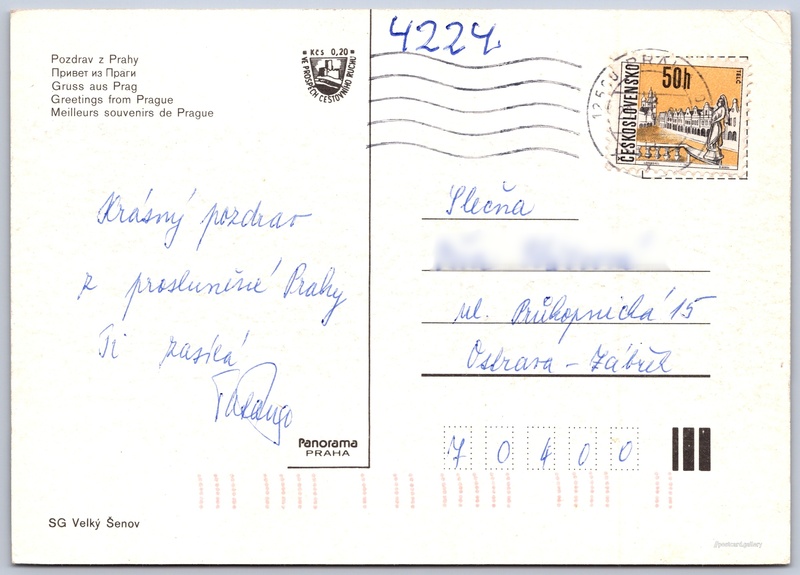 Pozdrav z Prahy
Привет из Праги
Gruss aus Prag
Greetings from Prague
Meilleurs souvenirs de Prague
Kčs 0,20
VE PROSPĚCH CESTOVNÍHO RUCHU
4224
ČESKOSLOVENSKO
50h
TELČ
Krásný pozdrav
z prosluněné Prahy
Ti zasílá
Slečna
ul. Průkopnická 15
Ostrava - Zábřeh
70400
Panorama
PRAHA
SG Velký Šenov
//postcard.gallery